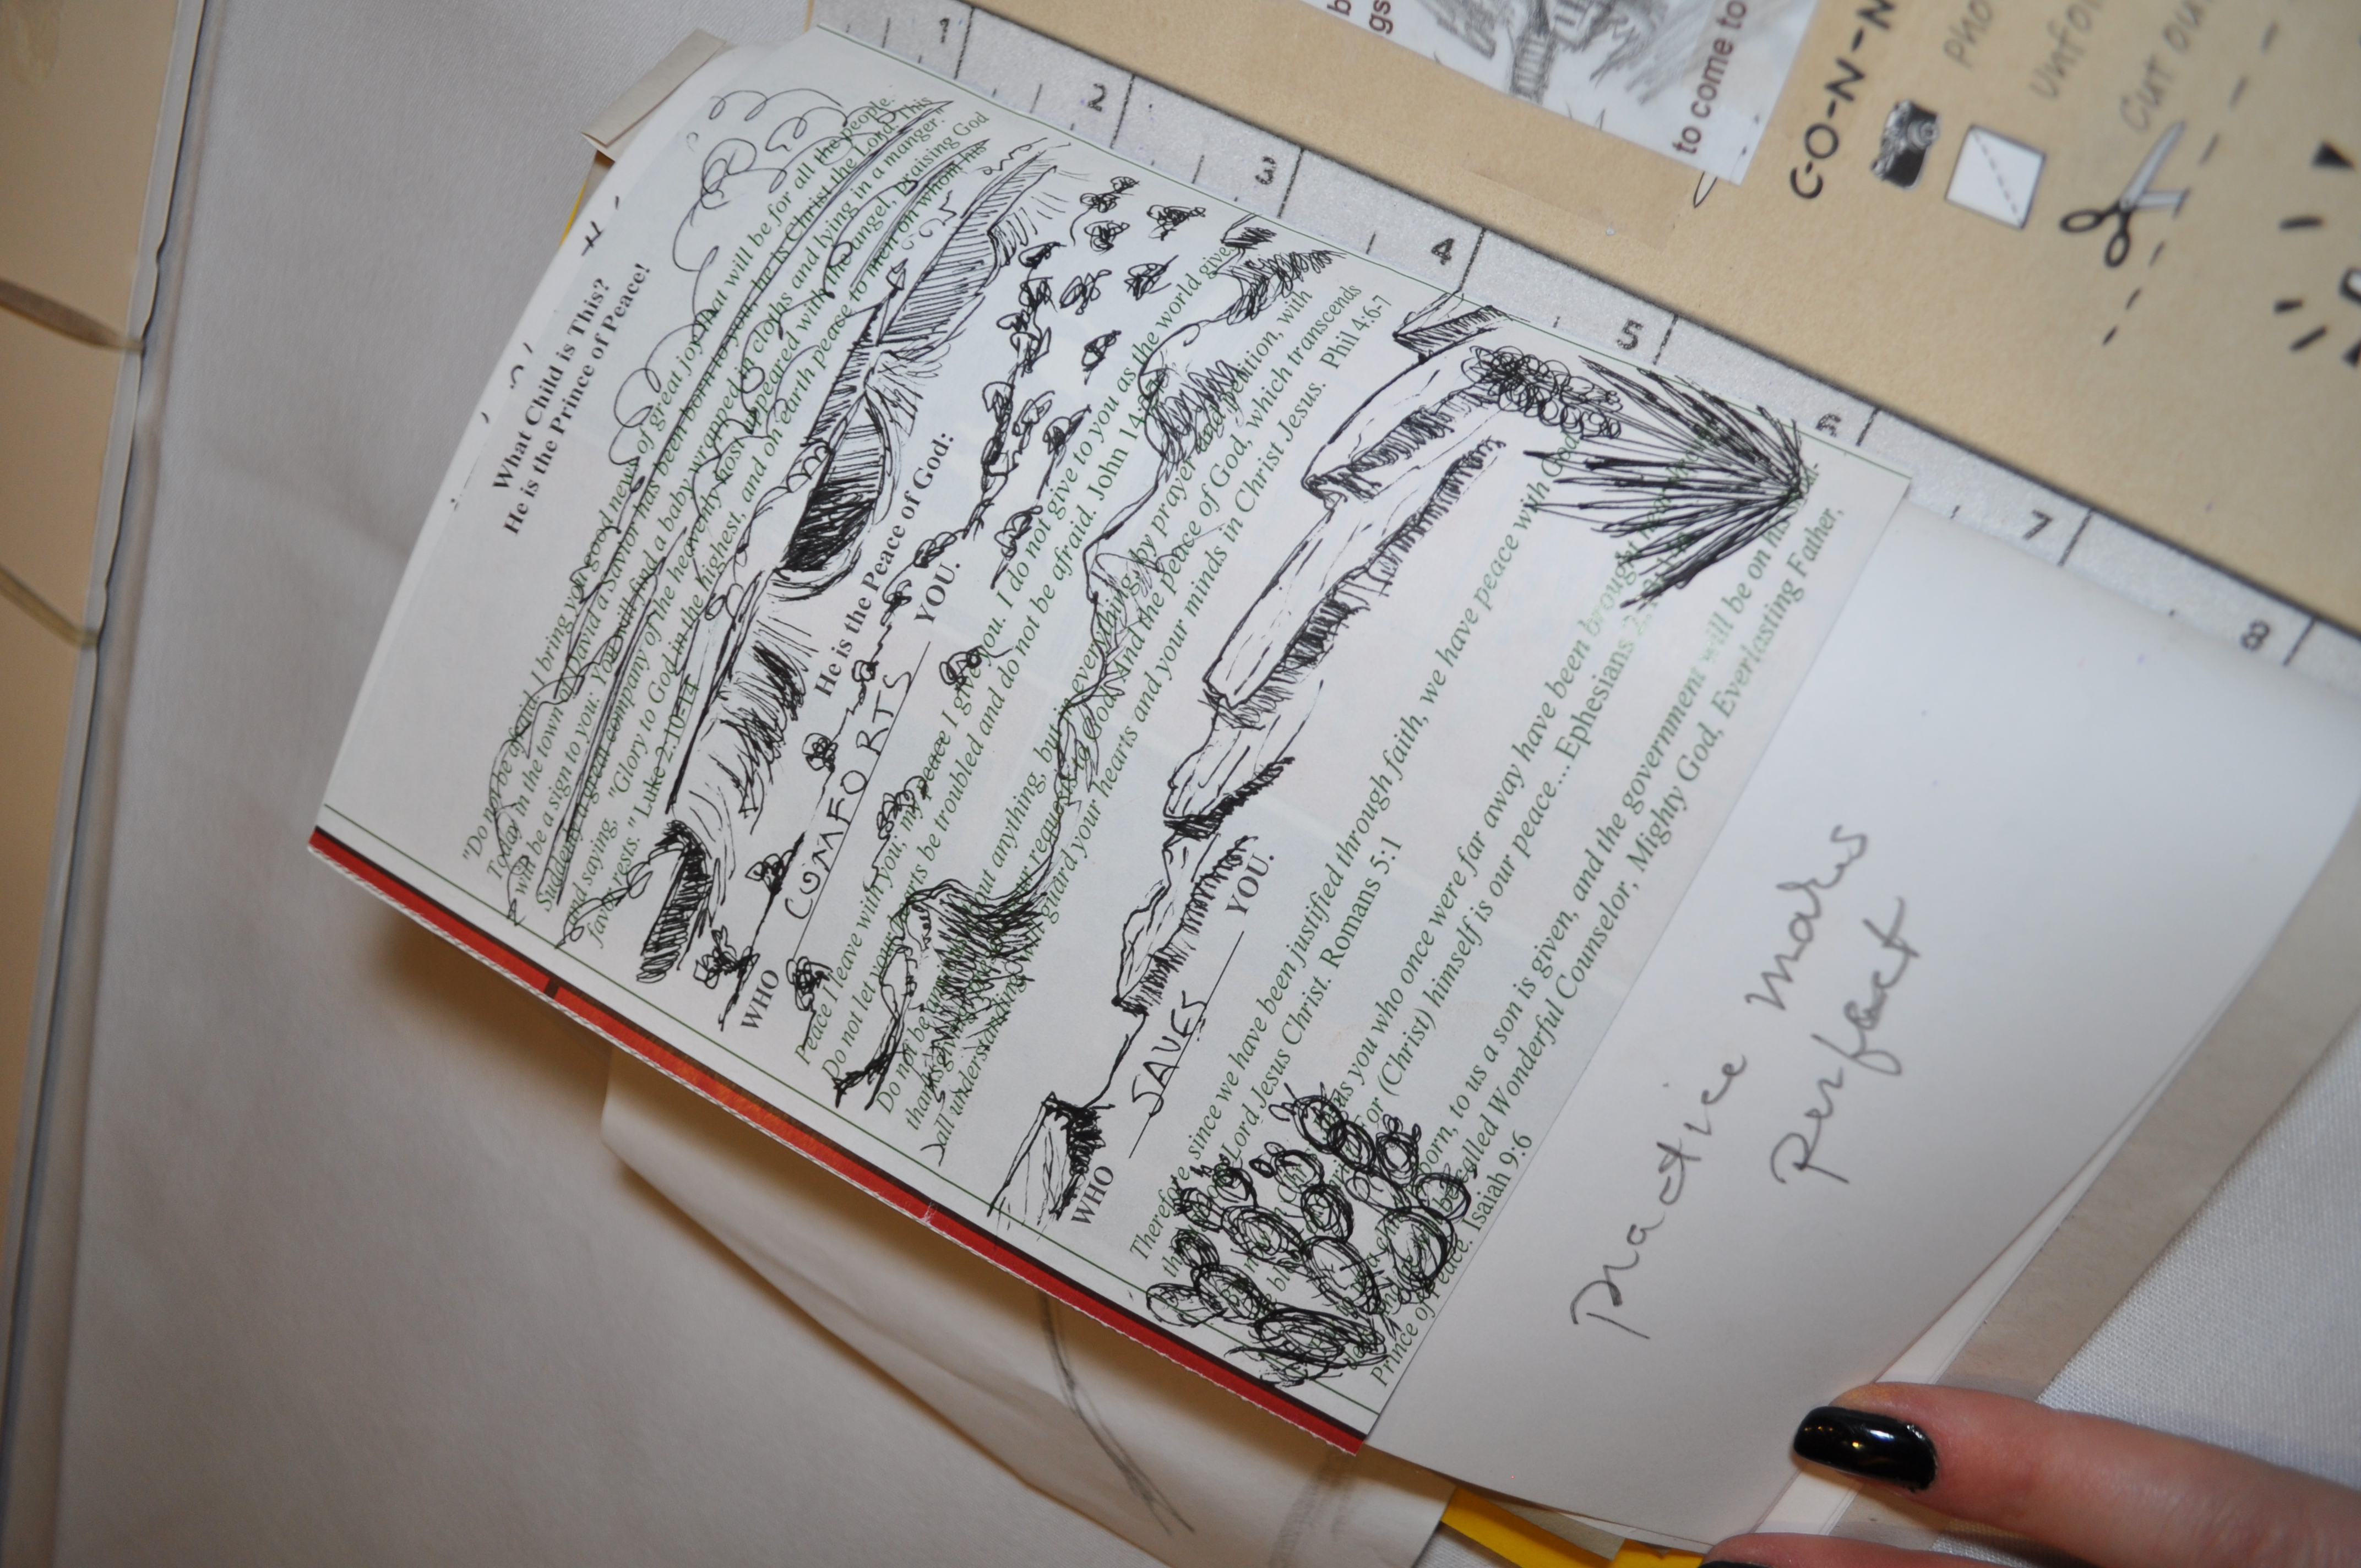 What Child is This?
He is the Prince of Peace!
"Do not be afraid. I bring you good news of great joy that will be for all the people.
Today in the town of David a Savior has been born to you; he is Christ the Lord. This
will be a sign to you: You will find a baby wrapped in cloths and lying in a manger."
Suddenly a great company of the heavenly host appeared with the angel, praising God
and saying, "Glory to God in the highest, and on earth peace to men on whom his
favor rests." Luke 2:10-14
He is the Peace of God:
WHO COMFORTS YOU.
Peace I leave with you; my peace I give you. I do not give to you as the world gives.
Do not let your hearts be troubled and do not be afraid. John 14:
Do not be anxious about anything, but in everything, by prayer and petition, with
thanksgiving, present your requests to God. And the peace of God, which transcends
all understanding, will guard your hearts and your minds in Christ Jesus. Phil 4:6-7
WHO SAVES YOU.
Therefore, since we have been justified through faith, we have peace with God
through our Lord Jesus Christ. Romans 5:1
you who once were far away have been brought near
For (Christ) himself is our peace... Ephesians 2:
born, to us a son is given, and the government will be on his shoul-
be called Wonderful Counselor, Mighty God, Everlasting Father,
Prince of Peace. Isaiah 9:6
Practice Makes
Perfect
1
2
3
4
5
6
7
8
b
gs
to come to
C-O-N-N
Pho
unfol
Cut out